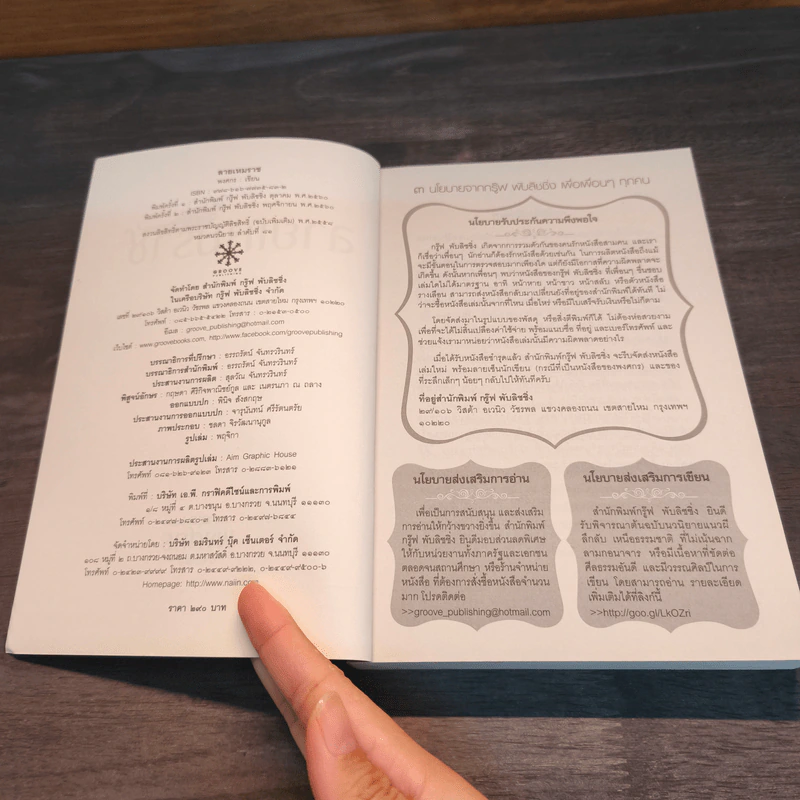 ลายเหมราช
พงศกร : เขียน
พิมพ์ครั้งที่ ๑ : สำนักพิมพ์ กรู๊ฟ พับลิชชิ่ง ตุลาคม พ.ศ.๒๕๖๐
พิมพ์ครั้งที่ ๒ : สำนักพิมพ์ กรู๊ฟ พับลิชชิ่ง พฤศจิกายน พ.ศ.๒๕๖๐
สงวนลิขสิทธิ์ตามพระราชบัญญัติลิขสิทธิ์ (ฉบับเพิ่มเติม) พ.ศ.๒๕๕๘
หมวดนวนิยาย ลำดับที่ ๘๑
GROOVE
จัดทำโดย สำนักพิมพ์ กรู๊ฟ พับลิชชิ่ง
ในเครือบริษัท กรู๊ฟ พับลิชชิ่ง จำกัด
เลขที่ ๒๙/๑๐๖ วิสต้า อเวนิว วัชรพล แขวงคลองถนน เขตสายไหม กรุงเทพฯ ๑๐๒๒๐
โทรศัพท์ : ๐๘๕-๖๕๕-๕๔๒๒ โทรสาร : ๐-๒๑๕๓-๐๕๐๐
อีเมล : groove_publishing@hotmail.com
เว็บไซต์ : www.groovebooks.com, http://www.facebook.com/groovepublishing
บรรณาธิการที่ปรึกษา : อรรถรัตน์ จันทรวรินทร์
บรรณาธิการสำนักพิมพ์ : อรรถรัตน์ จันทรวรินทร์
ประสานงานการผลิต : สุลวัณ จันทรวรินทร์
พิสูจน์อักษร : กฤษดา ศิริกิจพาณิชย์กูล และ เนตรนภา ณ ถลาง
ออกแบบปก : พินิจ สังสกฤษ
ประสานงานการออกแบบปก : จารุนันท์ ศรีรัตนตรัย
ภาพประกอบ : ชลดา จิรวัฒนานุกูล
รูปเล่ม : พฤจิกา
ประสานงานการผลิตรูปเล่ม : Aim Graphic House
โทรศัพท์ ๐๘๑-๖๒๖-๙๑๒๓ โทรสาร ๐-๒๘๘๓-๖๑๒๑
พิมพ์ที่ : บริษัท เอ.พี. กราฟิคดีไซน์และการพิมพ์
๑/๘ หมู่ที่ ๕ ต.บางขนุน อ.บางกรวย จ.นนทบุรี ๑๑๑๓๐
โทรศัพท์ ๐-๒๔๙๗-๖๘๔๐-๓ โทรสาร ๐-๒๔๙๗-๖๘๔๔
จัดจำหน่ายโดย : บริษัท อมรินทร์ บุ๊ค เซ็นเตอร์ จำกัด
๑๐๘ หมู่ที่ ๒ ถ.บางกรวย-จงถนอม ต.มหาสวัสดิ์ อ.บางกรวย จ.นนทบุรี ๑๑๑๓๐
โทรศัพท์ ๐-๒๔๒๓-๙๙๙๙ โทรสาร ๐-๒๔๔๙-๙๒๒๒, ๐-๒๔๔๙-๙๕๐๐-๖
Homepage: http://www.naiin.com
ราคา ๒๙๐ บาท
๓ นโยบายจากกรู๊ฟ พับลิชชิ่ง เพื่อเพื่อนๆ ทุกคน
นโยบายรับประกันความพึงพอใจ
กรู๊ฟ พับลิชชิ่ง เกิดจากการรวมตัวกันของคนรักหนังสือสามคน และเรา
ก็เชื่อว่าเพื่อนๆ นักอ่านก็ต้องรักหนังสือด้วยเช่นกัน ในการผลิตหนังสือถึงแม้
จะมีขั้นตอนในการตรวจสอบมากเพียงใด แต่ก็ยังมีโอกาสที่ความผิดพลาดจะ
เกิดขึ้น ดังนั้นหากเพื่อนๆ พบว่าหนังสือของกรู๊ฟ พับลิชชิ่ง ที่เพื่อนๆ ชื่นชอบ
เล่มใดไม่ได้มาตรฐาน อาทิ หน้าหาย หน้าขาว หน้าสลับ หรือตัวหนังสือ
รางเลือน สามารถส่งหนังสือกลับมาเปลี่ยนยังที่อยู่ของสำนักพิมพ์ได้ทันที ไม่
ว่าจะซื้อหนังสือเล่มนั้นจากที่ไหน เมื่อไหร่ หรือมีใบเสร็จรับเงินหรือไม่ก็ตาม
โดยจัดส่งมาในรูปแบบของพัสดุ หรือสิ่งตีพิมพ์ก็ได้ ไม่ต้องห่อสวยงาม
เพื่อที่จะได้ไม่สิ้นเปลืองค่าใช้จ่าย พร้อมแนบชื่อ ที่อยู่ และเบอร์โทรศัพท์ และ
ช่วยแจ้งเรามาหน่อยว่าหนังสือเล่มนั้นมีความผิดพลาดอย่างไร
เมื่อได้รับหนังสือชำรุดแล้ว สำนักพิมพ์กรู๊ฟ พับลิชชิ่ง จะรีบจัดส่งหนังสือ
เล่มใหม่ พร้อมลายเซ็นนักเขียน (กรณีที่เป็นหนังสือของพงศกร) และของ
ที่ระลึกเล็กๆ น้อยๆ กลับไปให้ทันทีครับ
ที่อยู่สำนักพิมพ์ กรู๊ฟ พับลิชชิ่ง
๒๙/๑๐๖ วิสต้า อเวนิว วัชรพล แขวงคลองถนน เขตสายไหม กรุงเทพฯ
๑๐๒๒๐
นโยบายส่งเสริมการอ่าน
เพื่อเป็นการสนับสนุน และส่งเสริม
การอ่านให้กว้างขวางยิ่งขึ้น สำนักพิมพ์
กรู๊ฟ พับลิชชิ่ง ยินดีมอบส่วนลดพิเศษ
ให้กับหน่วยงานทั้งภาครัฐและเอกชน
ตลอดจนสถานศึกษา หรือร้านจำหน่าย
หนังสือ ที่ต้องการสั่งซื้อหนังสือจำนวน
มาก โปรดติดต่อ
>>groove_publishing@hotmail.com
นโยบายส่งเสริมการเขียน
สำนักพิมพ์กรู๊ฟ พับลิชชิ่ง ยินดี
รับพิจารณาต้นฉบับนวนิยายแนวผี
ลึกลับ เหนือธรรมชาติ ที่ไม่เน้นฉาก
ลามกอนาจาร หรือมีเนื้อหาที่ขัดต่อ
ศีลธรรมอันดี และมีวรรณศิลป์ในการ
เขียน โดยสามารถอ่าน รายละเอียด
เพิ่มเติมได้ที่ลิงก์นี้
>>http://goo.gl/LkOZri